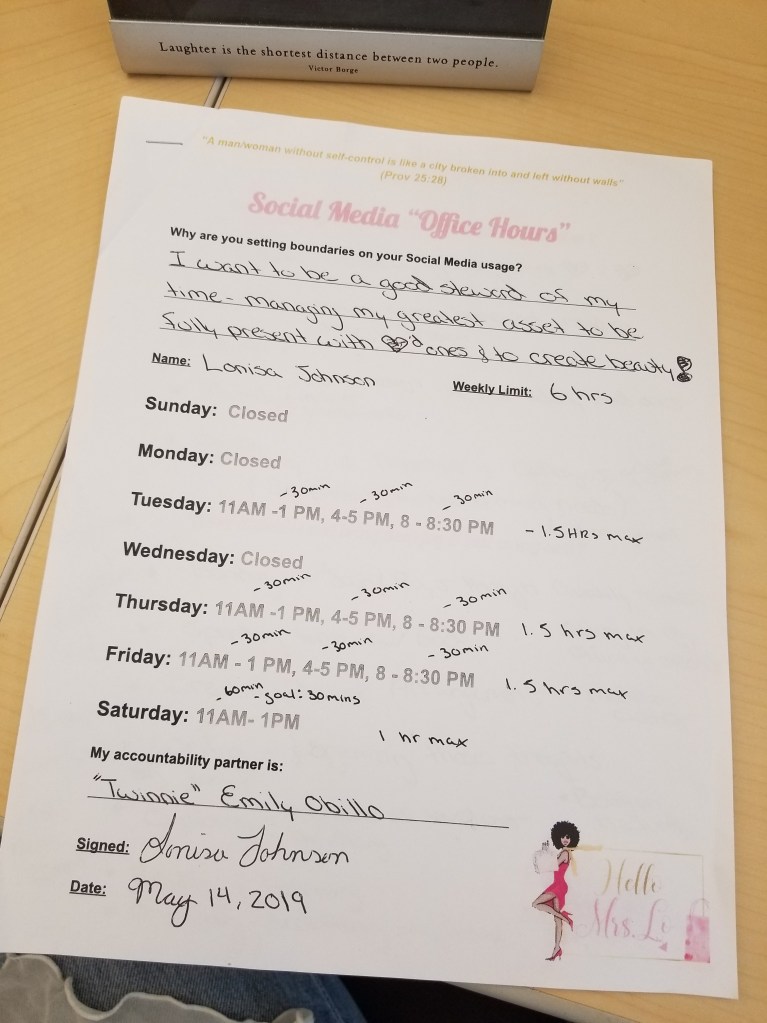 Laughter is the shortest distance between two people.
Victor Borge
"A man/woman without self-control is like a city broken into and left without walls"
(Prov 25:28)
Social Media "Office Hours"
Why are you setting boundaries on your Social Media usage?
I want to be a good steward of my
time - managing my greatest asset to be
fully present with ♥'d ones & to create beauty!
Name: Lonisa Johnson
Weekly Limit: 6 hrs
Sunday: Closed
Monday: Closed
-30min -30min -30min
Tuesday: 11AM -1 PM, 4-5 PM, 8 - 8:30 PM - 1.5HRs max
Wednesday: Closed
-30min -30min -30min
Thursday: 11AM -1 PM, 4-5 PM, 8 - 8:30 PM 1.5 hrs max
-30min -30min -30min
Friday: 11AM - 1 PM, 4-5 PM, 8 - 8:30 PM 1.5 hrs max
-60min -goal: 30mins
Saturday: 11AM- 1PM 1 hr max
My accountability partner is:
"Twinnie" Emily Obillo
Signed: Lonisa Johnson
Date: May 14, 2019
Hello
Mrs. Li